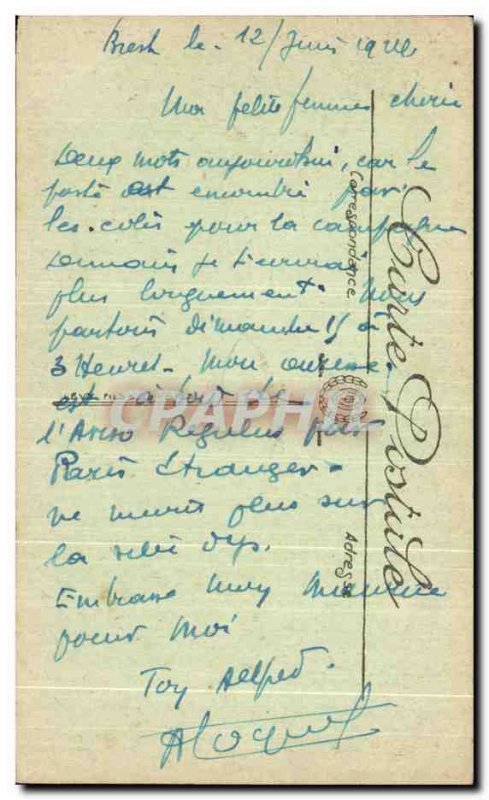 Brest le 12/Juin 192
Ma petite femme chérie
Deux mots aujourd'hui, car le
poste est encombré par
les colis pour la campagne
Demain je t'écrirai
plus longuement. Nous
partons dimanche 15 à
3 Heures. Mon
est
l'Aviso Regulus par
Paris Etranger
ne mets plus sur
la
Embrasse Maurice
pour moi
Ton Alfred.
CPAPHIL
Carte Postale
Correspondance
Adresse